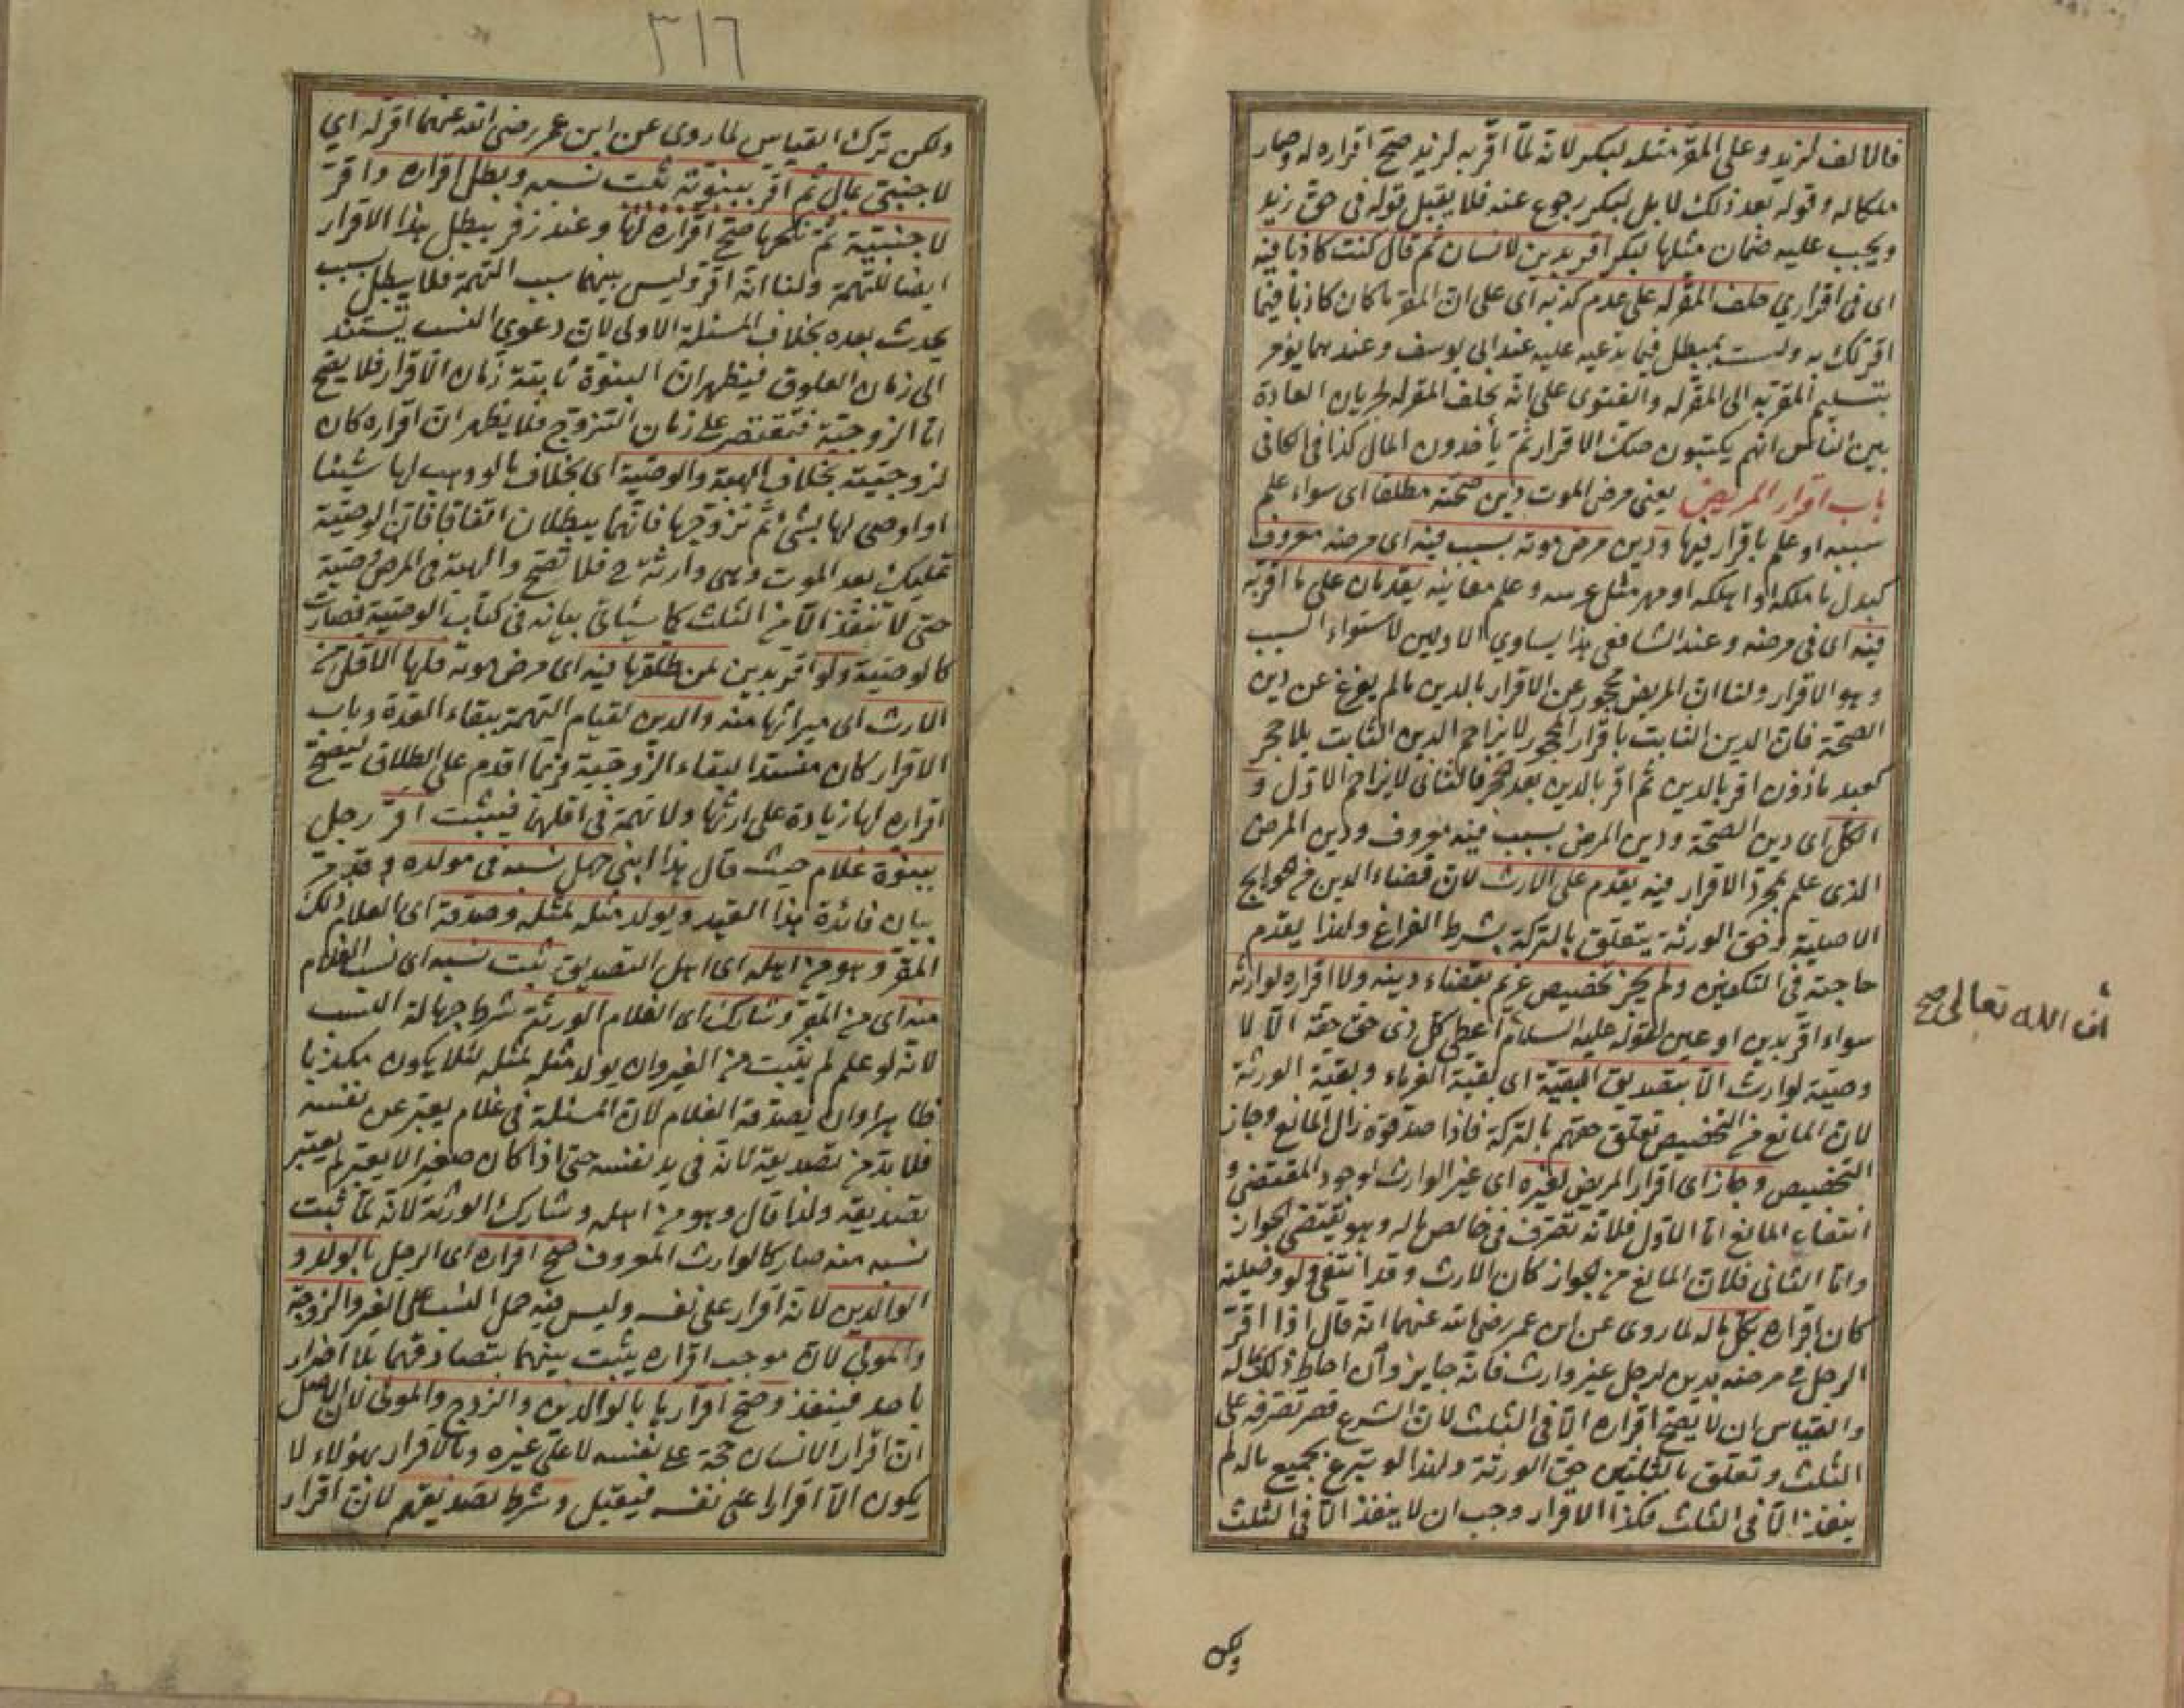 فالالف لزيد وعلى المقر مثله لبكر لانه لما اقر به لزيد صح اقراره له وصار
ملكا له وقوله بعد ذلك لا بل لبكر رجوع عنه فلا يقبل قوله في حق زيد
ويجب عليه ضمان مثلها لبكر اقر بدين لانسان ثم قال كنت كاذبا فيه
اى فى اقراري حلف المقر له على عدم كذبه اى على ان المقر ما كان كاذبا فيما
اقر لك به ولست بمبطل فيما تدعيه عليه عند ابى يوسف وعندهما يؤمر
بتسليم المقر به الى المقر له والفتوى على انه يحلف المقر له لجريان العادة
بين الناس انهم يكتبون صك الاقرار ثم يأخذون المال كذا فى الكافى
باب اقرار المريض يعنى مرض الموت دين صحته مطلقا اى سواء علم
سببه او علم باقرار فيها ودين مرض موته بسبب فيه اى مرضه معروف
كبدل ما ملكه او اهلكه او مهر مثل عرسه وعلم معاينه يقدمان على ما اقر به
فيه اى فى مرضه وعند الشافعى هذا يساوي الاولين لاستواء السبب
وهو الاقرار ولنا ان المريض محجور عن الاقرار بالدين مالم يفرغ عن دين
الصحة فان الدين الثابت باقرار المحجور لا يزاحم الدين الثابت بلا حجر
كعبد ماذون اقر بالدين ثم اقر بالدين بعد الحجر فالثانى لا يزاحم الاول و
الكل اى دين الصحة ودين المرض بسبب فيه معروف ودين المرض
الذى علم بمجرد الاقرار فيه يقدم على الارث لان قضاء الدين من حوايج
الاصلية وحق الورثة يتعلق بالتركة بشرط الفراغ ولهذا يقدم
حاجته فى التكفين ولم يجز تخصيص غريم بقضاء دينه ولا اقراره لوارثه
سواء اقر بدين او عين لقوله عليه السلام اعطى كل ذى حق حقه الا لا
ان الله تعالى صح
وصية لوارث الا بتصديق البقية اى بقية الغرماء وبقية الورثة
لان المانع من التخصيص تعلق حقهم بالتركة فاذا صدقوه زال المانع وجاز
التخصيص وجاز اى اقرار المريض لغيره اى غير الوارث لوجود المقتضى و
انتفاء المانع اما الاول فلانه تصرف فى خالص ماله وهو يقتضى الجواز
واما الثانى فلان المانع من الجواز كان الارث وقد انتفى ولو وصلية
كان اقراره بكل ماله لما روى عن ابن عمر رضى الله عنهما انه قال اذا اقر
الرجل فى مرضه بدين لرجل غير وارث فانه جايز وان احاط ذلك بماله
والقياس ان لا يصح اقراره الا فى الثلث لان الشرع قصر تصرفه على
الثلث وتعلق بالثلثين حق الورثة ولهذا لو تبرع بجميع ماله لم
ينفذ الا فى الثلث فكذا الاقرار وجب ان لا ينفذ الا فى الثلث
ولكن
٣١٦
ولكن ترك القياس لما روى عن ابن عمر رضى الله عنهما اقر له اى
لاجنبى بمال ثم اقر ببنوته ثبت نسبه وبطل اقراره واقر
لاجنبية ثم نكحها صح اقراره لها وعند زفر يبطل هذا الاقرار
ايضا للتهمة ولنا انه اقر وليس بينهما سبب التهمة فلا يبطل بسبب
يحدث بعده بخلاف المسئلة الاولى لان دعوى النسب تستند
الى زمان العلوق فيظهر ان البنوة ثابتة زمان الاقرار فلا يصح
اما الزوجية فتقتصر على زمان التزوج فلا يظهر ان اقراره كان
لزوجته بخلاف الهبة والوصية اى بخلاف ما لو وهب لها شيئا
او اوصى لها بشئ ثم تزوجها فانهما يبطلان اتفاقا فان الوصية
تمليك بعد الموت وهى وارثة ح فلا تصح والهبة فى المرض وصية
حتى لا تنفذ الا من الثلث كما سيأتى بيانه فى كتاب الوصية فصارت
كالوصية ولو اقر بدين لمن طلقها فيه اى مرض موته فلها الاقل من
الارث اى ميراثها منه والدين لقيام التهمة ببقاء العدة وباب
الاقرار كان منسدا لبقاء الزوجية فربما اقدم على الطلاق ليصح
اقراره لها زيادة على ارثها ولا تهمة فى اقلهما فيثبت اقر رجل
ببنوة غلام حيث قال هذا ابنى جهل نسبه فى مولده وقد مر
بيان فائدة هذا القيد ويولد مثله لمثله وصدقه اى الغلام ذلك
المقر وهو من اهله اى اهل التصديق ثبت نسبه اى نسب الغلام
منه اى من المقر وشارك اى الغلام الورثة شرط جهالة النسب
لانه لو علم لم يثبت من الغير وان يولد مثله لمثله لئلا يكون مكذبا
ظاهرا وان يصدقه الغلام لان المسئلة فى غلام يعبر عن نفسه
فلا بد من تصديقه لانه فى يد نفسه حتى اذا كان صغيرا لا يعبر لم يعتبر
تصديقه ولذا قال وهو من اهله وشارك الورثة لانه لما ثبت
نسبه منه صار كالوارث المعروف صح اقراره اى الرجل بالولد و
الوالدين لانه اقرار على نفسه وليس فيه حمل النسب على الغير والزوجة
والمولى لان موجب اقراره يثبت بينهما بتصادقهما بلا اضرار
باحد فينفذ وصح اقرارها بالوالدين والزوج والمولى لان الاصل
ان اقرار الانسان حجة على نفسه لا على غيره وبالاقرار بهؤلاء لا
يكون الا اقرارا على نفسه فيقبل وشرط تصديقهم لان اقرار